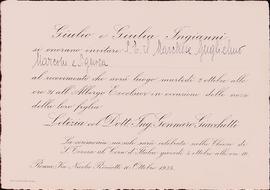 Giulio e Giulia Ingianni
si onorano invitare S. E. il Marchese Guglielmo
Marconi e Signora
al ricevimento che avrà luogo martedì 2 ottobre alle
ore 21 all'Albergo Excelsior in occasione delle nozze
della loro figlia
Letizia col Dott. Ing. Gennaro Giacchetti
La cerimonia nuziale sarà celebrata nella Chiesa di
S. Teresa al Corso d'Italia, giovedì 4 ottobre alle ore 10.
Roma, Via Nicolò 10 Ottobre 1934